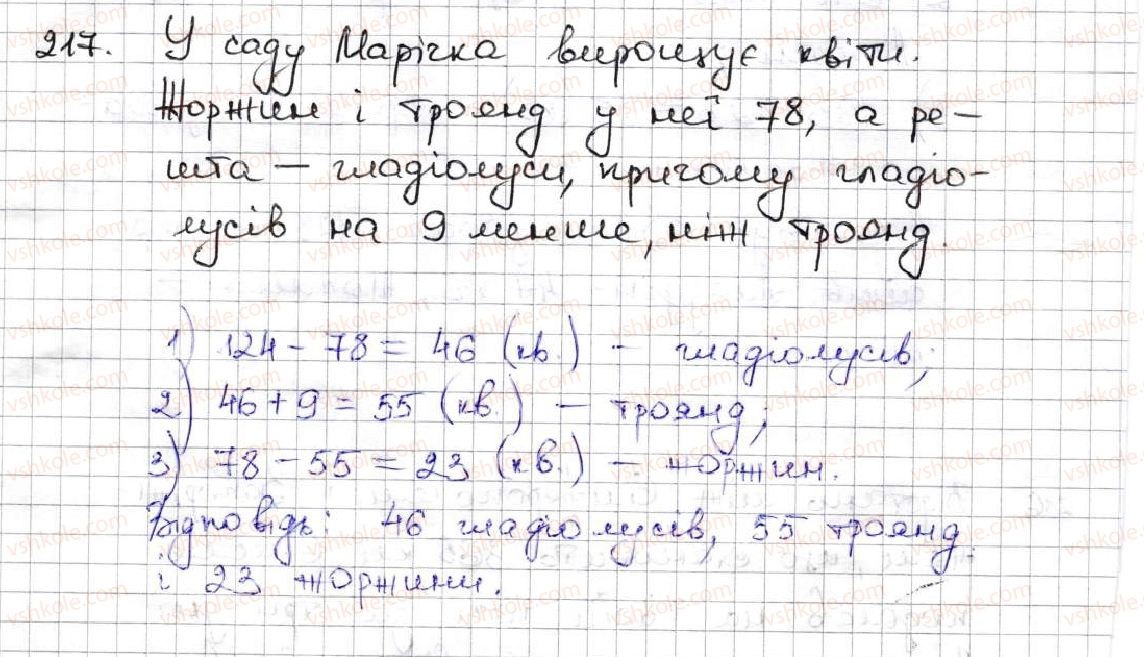 217. У саду Марічка вирощує квіти.
Жоржин і троянд у неї 78, а ре-
шта — гладіолуси, причому гладіо-
лусів на 9 менше, ніж троянд.
1) 124 - 78 = 46 (кв.) - гладіолусів;
2) 46 + 9 = 55 (кв.) - троянд;
3) 78 - 55 = 23 (кв.) - жоржин.
Відповідь: 46 гладіолусів, 55 троянд
і 23 жоржини.